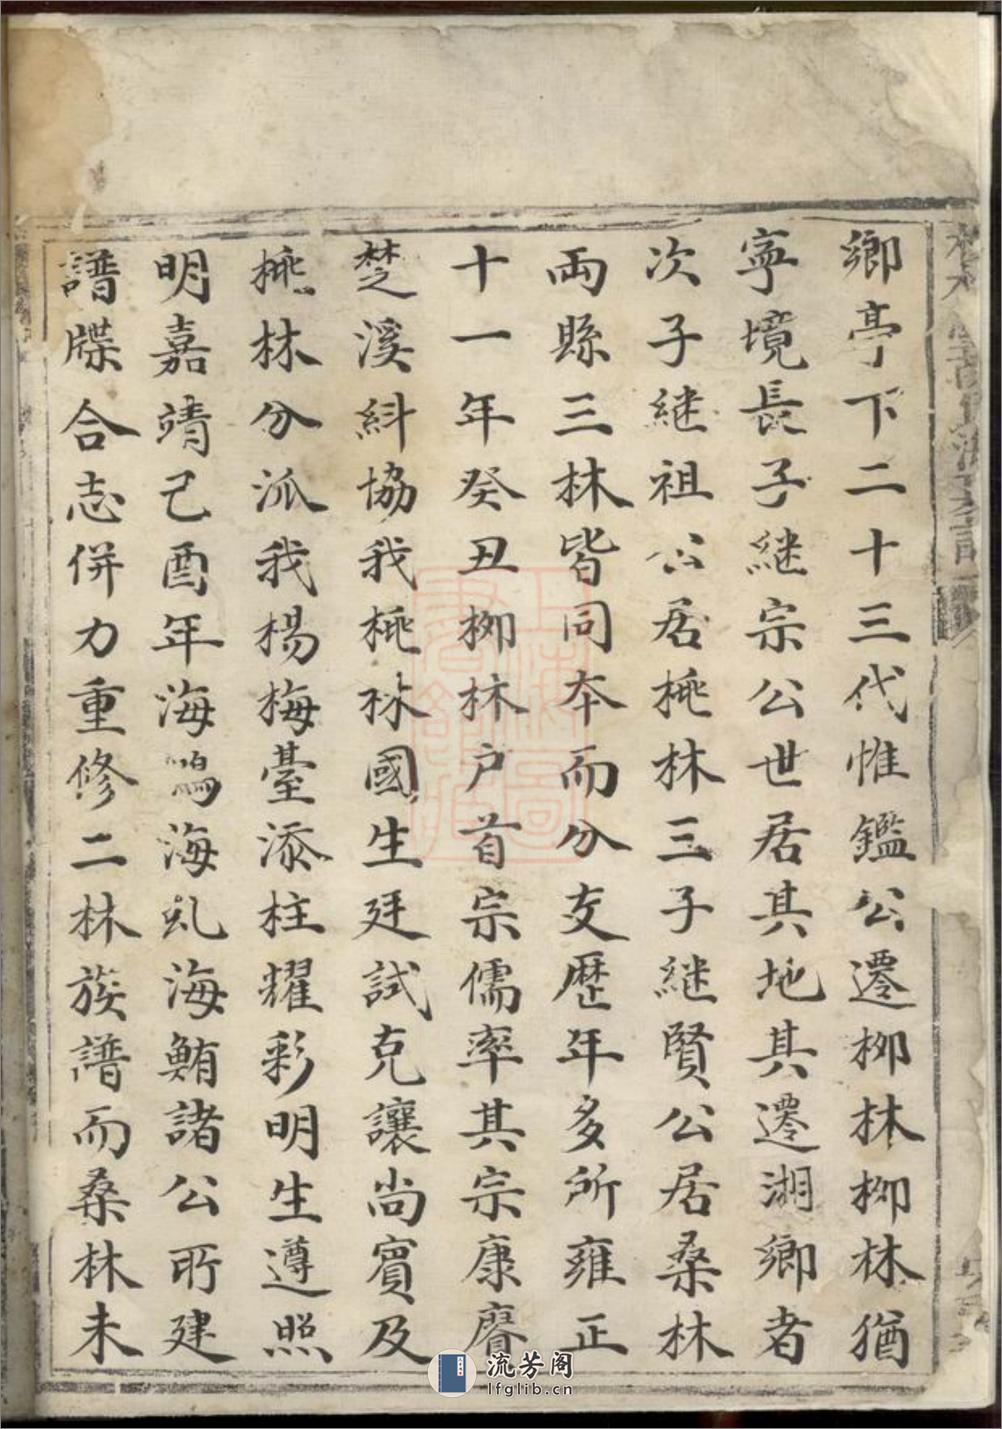 鄉亭下二十三代惟鑑公遷栁林栁林猶
寧境長子継宗公世居其地其遷湘鄉者
次子継祖公居桃林三子継賢公居桑林
両縣三林皆同本而分支歷年多所雍正
十一年癸丑栁林户首宗儒率其宗康睿
楚溪糾協我桃林國生廷試克讓尚賓及
桃林分派我楊梅臺添柱耀彩明生遵照
明嘉靖己酉年海鳴海虬海鮪諸公所建
譜牒合志併力重修二林族譜而桑林未
流芳阁
lfglib.cn